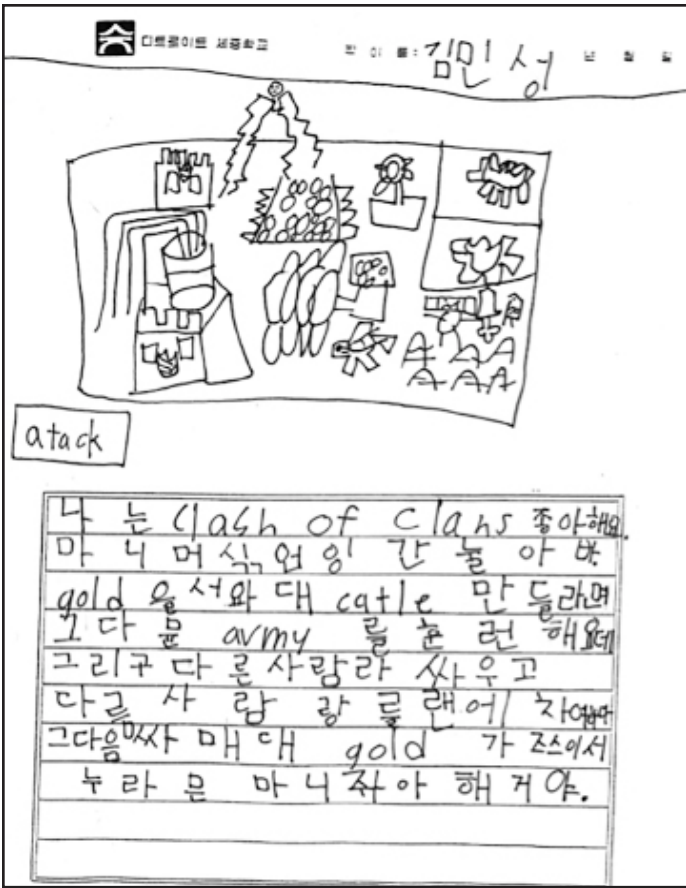 디트로이트 세종학교
이름: 김민성 년 월 일
atack
나는 Clash of Clans 좋아해요.
마니 머 싞업잉 간 눌아바.
gold 을서와대 catle 만들라면
그다믄 army 를훈련해요데
그리구다른사람라 싸우고
다름사람랑 를랜어
그다음싸매대 gold 가즈스이서
누라믄 마니좌아해거야.